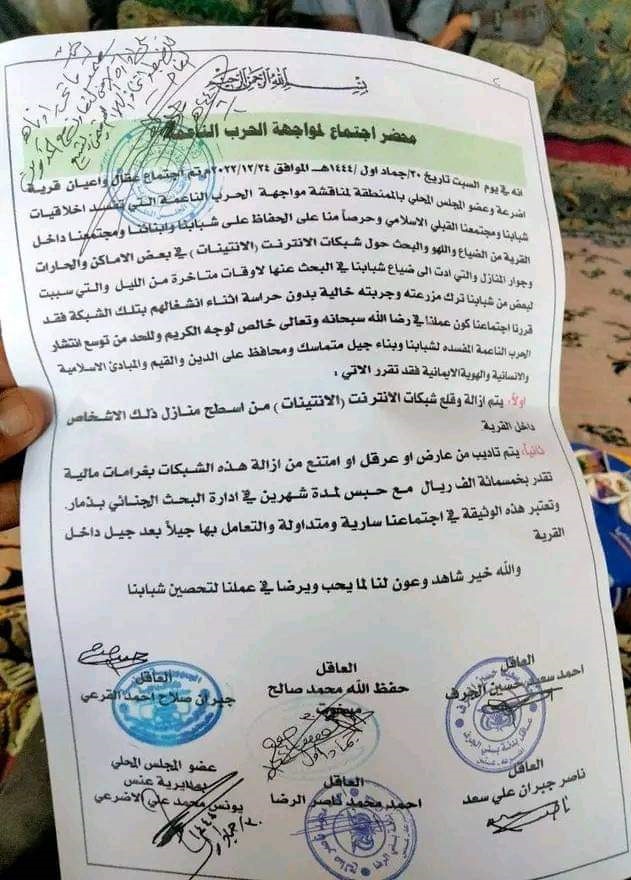 بسم الله الرحمن الرحيم
محضر اجتماع لمواجهة الحرب الناعمة
انه في يوم السبت تاريخ ٣٠/جماد اول /١٤٤٤هـ الموافق ٢٠٢٢/١٢/٢٤م تم اجتماع عقال واعيان قرية
اضرعة وعضو المجلس المحلي بالممنطقة لمناقشة مواجهة الحرب الناعمة التي تفسد اخلاقيات
شبابنا ومجتمعنا القبلي الاسلامي وحرصاً منا على الحفاظ على شبابنا وابنائنا ومجتمعنا داخل
القرية من الضياع واللهو والبحث حول شبكات الانترنت (الانتينات) في بعض الاماكن والحارات
وجوار المنازل والتي ادت الى ضياع شبابنا في البحث عنها لاوقات متاخرة من الليل والتي سببت
لبعض من شبابنا ترك مزرعته وجربته خالية بدون حراسة اثناء انشغالهم بتلك الشبكة فقد
قررنا اجتماعنا كون عملنا في رضا الله سبحانه وتعالى خالص لوجه الكريم وللحد من توسع انتشار
الحرب الناعمة المفسده لشبابنا وبناء جيل متماسك ومحافظ على الدين والقيم والمبادئ الاسلامية
والانسانية والهوية الايمانية فقد تقرر الاتي :
اولاً: يتم ازالة وقلع شبكات الانترنت (الانتينات) من اسطح منازل ذلك الاشخاص
داخل القرية
ثانياً: يتم تاديب من عارض او عرقل او امتنع من ازالة هذه الشبكات بغرامات مالية
تقدر بخمسمائة الف ريال مع حبس لمدة شهرين في ادارة البحث الجنائي بذمار
وتعتبر هذه الوثيقة في اجتماعنا سارية ومتداولة والتعامل بها جيلاً بعد جيل داخل
القرية
والله خير شاهد وعون لنا لما يحب ويرضا في عملنا لتحصين شبابنا
العاقل
احمد سعيد حسين الجرف
العاقل
حفظ الله محمد صالح
مبخوت
العاقل
جبران صلاح احمد القرعي
العاقل
ناصر جبران علي سعد
العاقل
احمد محمد ناصر الرضا
عضو المجلس المحلي
بمديرية عنس
يونس محمد علي الاضرعي